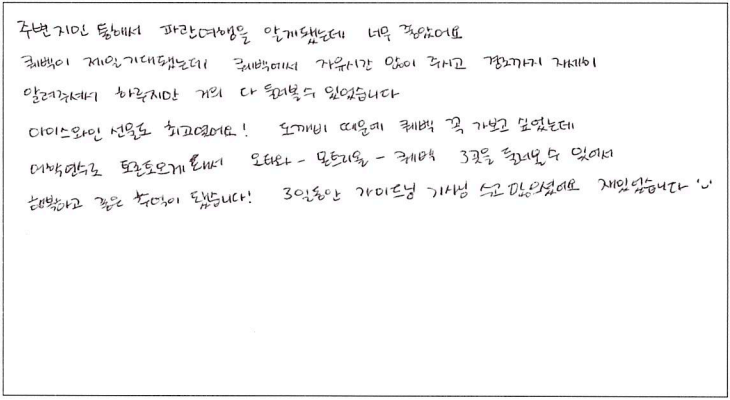 주변 지인 통해서 파란여행을 알게됐는데 너무 좋았어요
퀘백이 제일 기대됐는데 퀘백에서 자유시간 많이 주시고 경로까지 자세히
알려주셔서 하루지만 거의 다 둘러볼수 있었습니다
아이스와인 선물도 최고였어요! 도깨비 때문에 퀘백 꼭 가보고 싶었는데
어학연수로 토론토오게 돼서 오타와 - 몬트리올 - 퀘백 3곳을 둘러볼 수 있어서
행복하고 좋은 추억이 됐습니다! 3일동안 가이드님 기사님 수고 많으셨어요 재밌었습니다 ㆍ᎑ㆍ